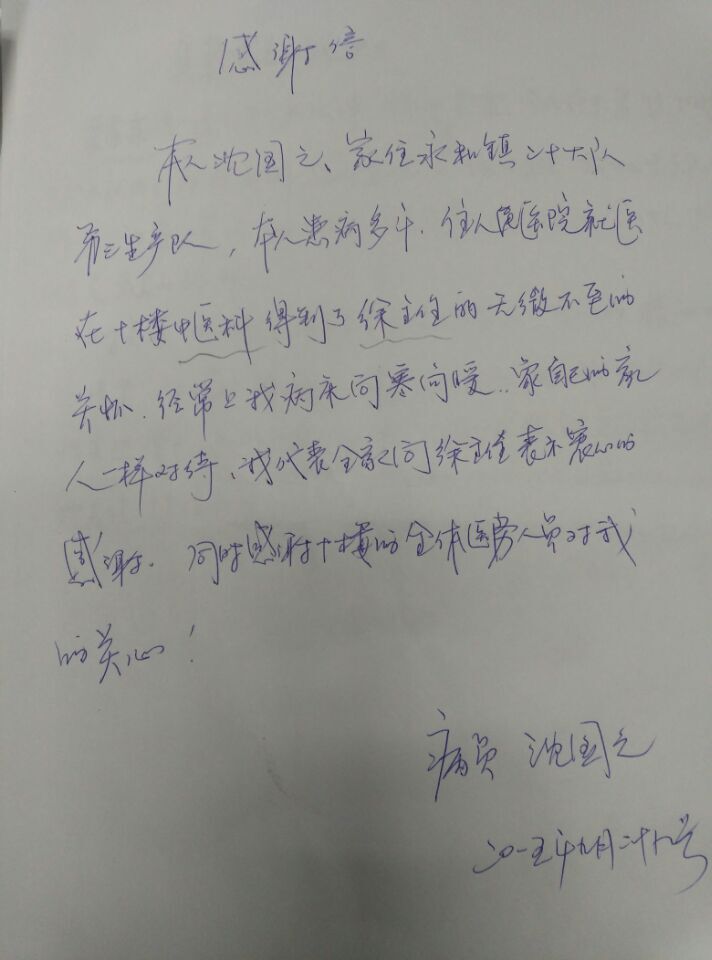 感谢信
本人沈国之、家住永和镇二十大队
第三生产队，本人患病多年．住人民医院就医
在十楼中医科得到了徐主任的无微不至的
关怀．经常上我病床问寒问暖．．家自己的家
人一样对待、我代表全家向徐主任表示衷心的
感谢．同时感谢十楼的全体医务人员对我
的关心！
病员 沈国之
二0一五年九月二十八号